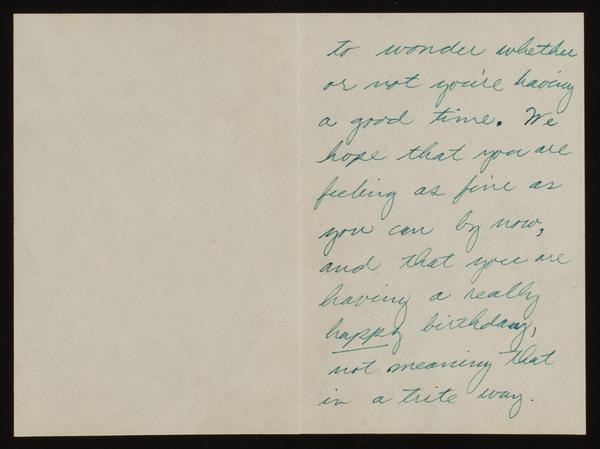 to wonder whether
or not you're having
a good time. We
hope that you are
feeling as fine as
you can by now,
and that you are
having a really
happy birthday,
not meaning that
in a trite way.